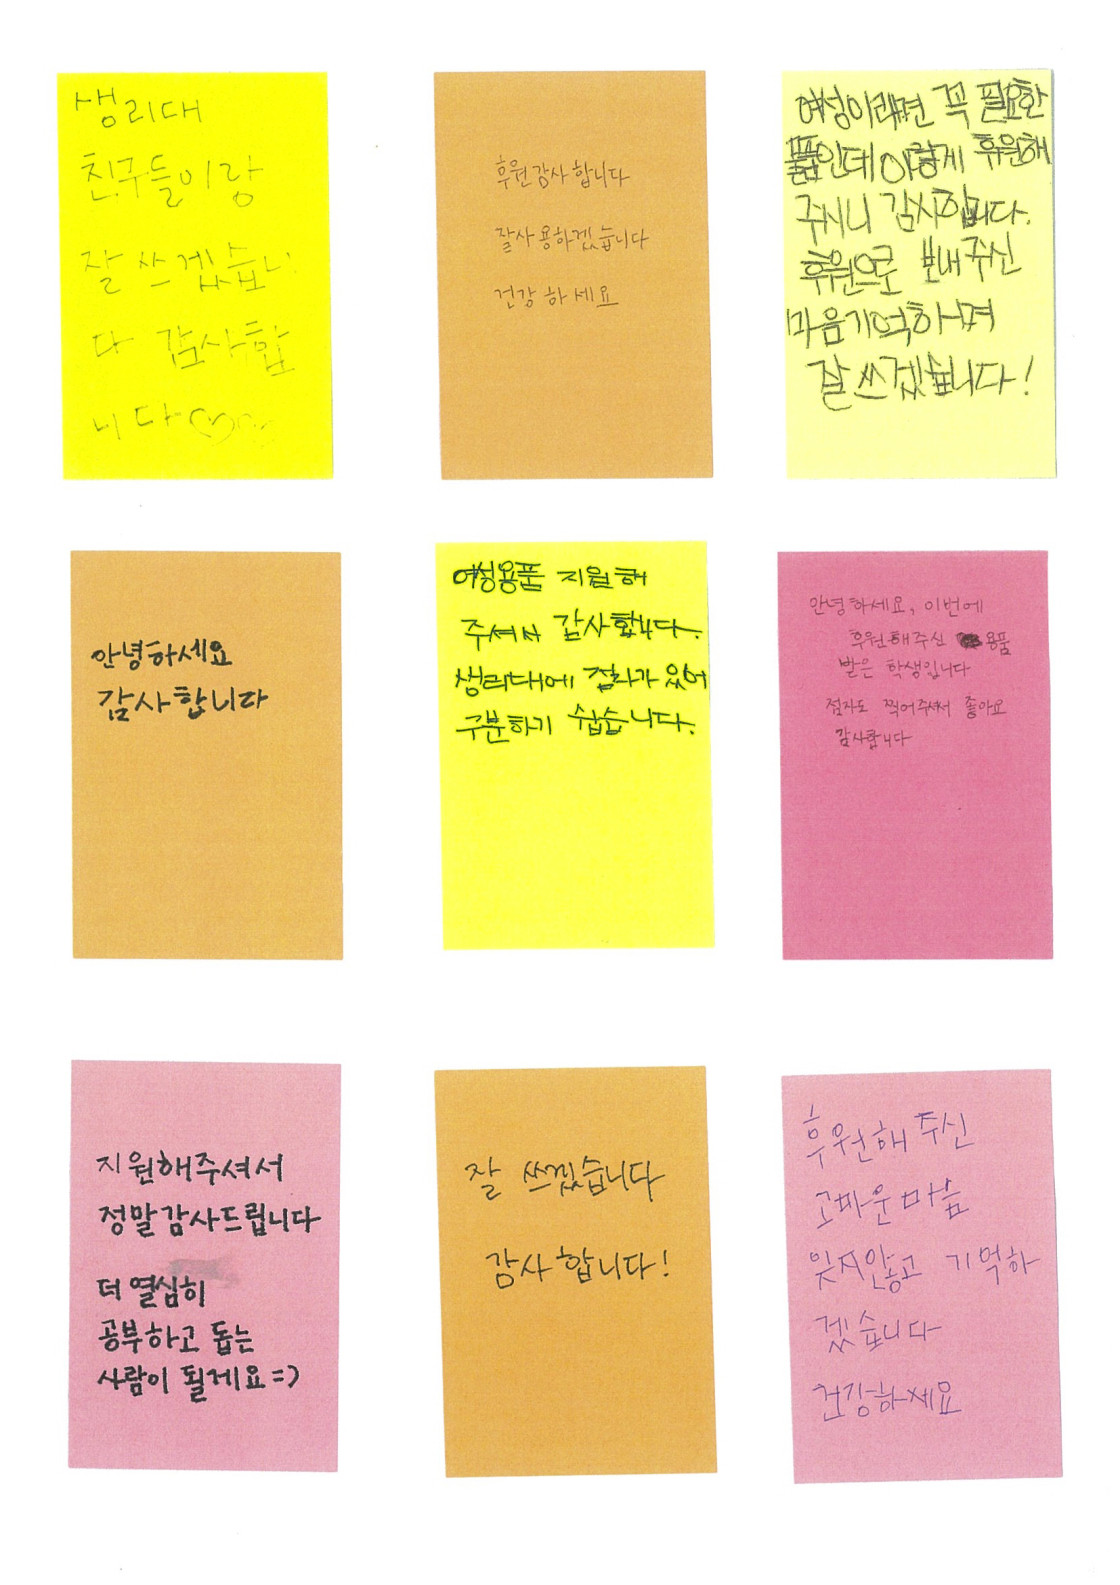 생리대
친구들이랑
잘 쓰겠습니
다 감사합
니다
후원감사합니다
잘사용하겠습니다
건강하세요
여성이라면 꼭 필요한
품인데 이렇게 후원해
주시니 감사합니다.
후원으로 보내주신
마음기억하며
잘 쓰겠습니다!
안녕하세요
감사합니다
여성용품 지원해
주셔서 감사합니다.
생리대에 점자가 있어
구분하기 쉽습니다.
안녕하세요, 이번에
후원해주신 용품
받은 학생입니다
점자도 찍어주셔서 좋아요
감사합니다
지원해주셔서
정말감사드립니다
더 열심히
공부하고 돕는
사람이 될게요=)
잘 쓰겠습니다
감사합니다!
후원해 주신
고마운마음
잊지안고 기억하
겠습니다
건강하세요